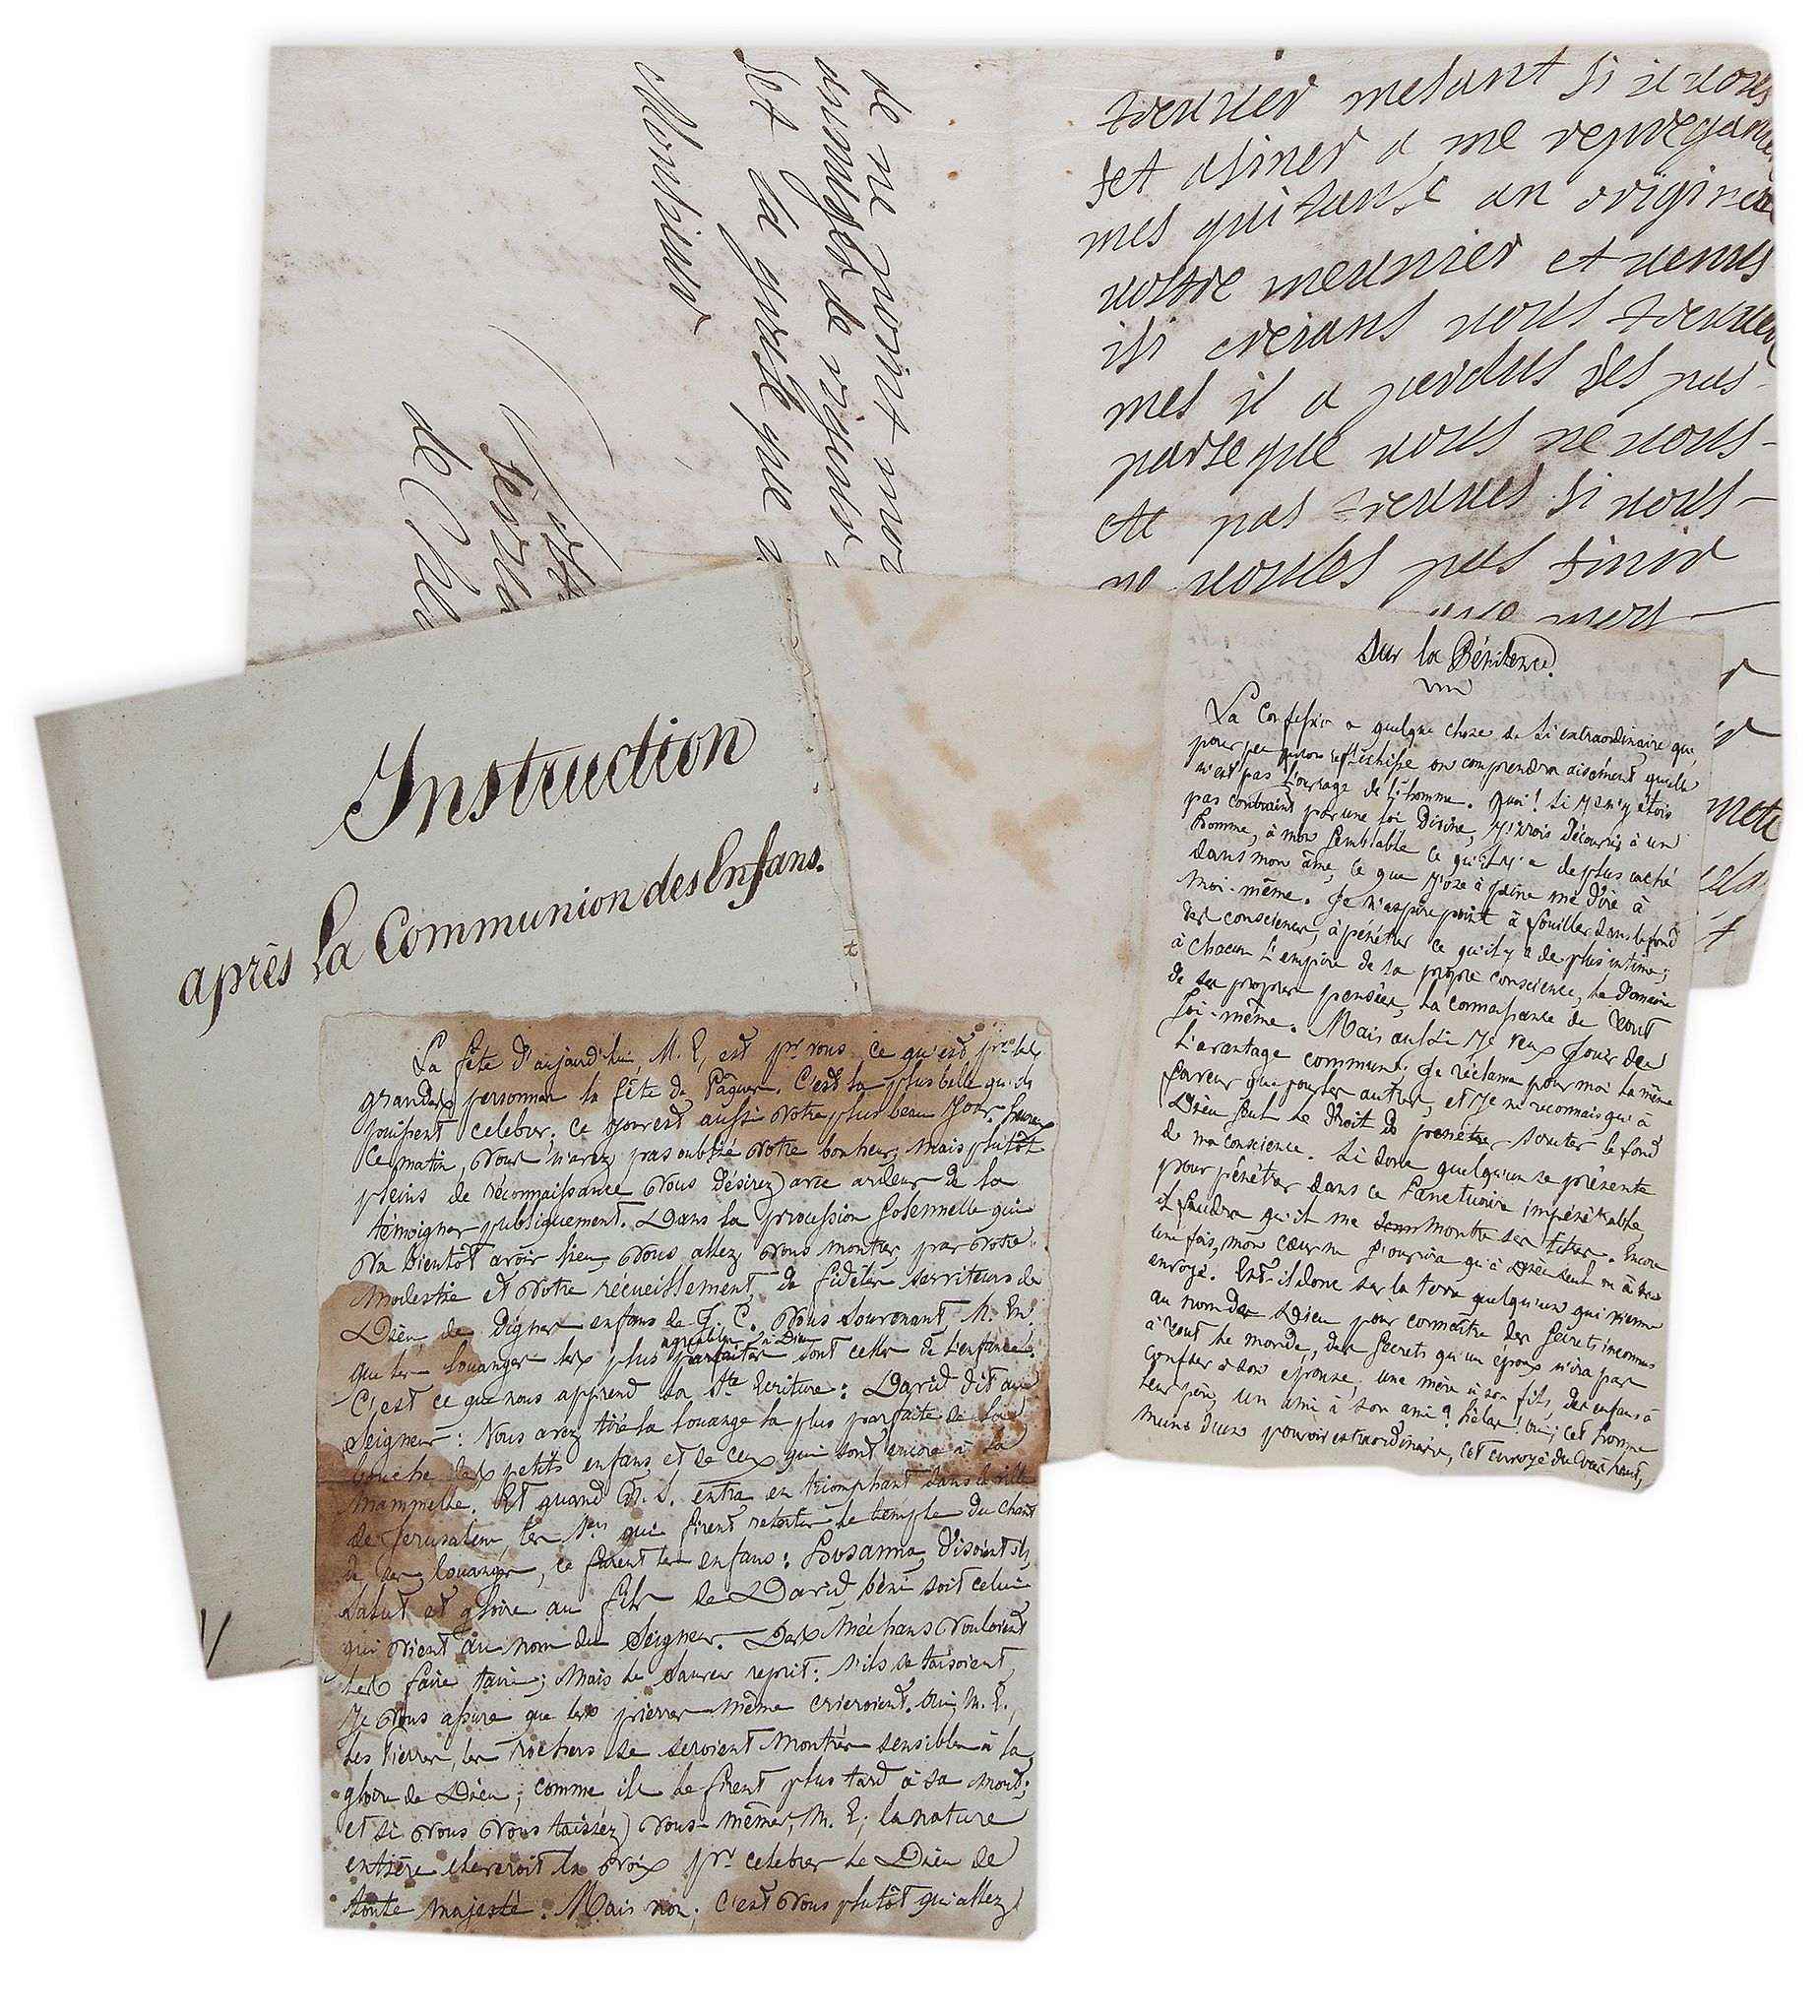 treuver metant si il vous
set asiner a me repregane
mes quitanse an origine
vostre meunier et venus
isi creians vous treuver
mes il a perdus ses pas
parse que vous ne vous
ete pas treuves si vous
ne voules pas finir
mort
de ne point
de
et la
Monsieur
de
Instruction
après la Communion des Enfans.
Sur la Pénitence.
La Confession a quelque chose de si extraordinaire que,
pour peu qu'on réfléchisse on comprendra aisément qu'elle
n'est pas l'ouvrage de l'homme. Quoi! si je n'y étois
pas contraint par une loi Divine, j'irois découvrir à un
homme, à mon semblable ce qu'il y a de plus caché
dans mon âme, ce que j'ose à peine me dire à
moi-même. Je n'aspire point à fouiller dans le fond
des consciences, à pénétrer ce qu'il y a de plus intime;
à chacun l'empire de sa propre conscience, le domaine
de ses propres pensées, la connoissance de tout
soi-même. Mais aussi je veux jouir de
l'avantage commun; je réclame pour moi la même
faveur que pour les autres, et je ne reconnais qu'à
Dieu seul le droit de pénétrer scruter le fond
de ma conscience. Si donc quelqu'un se présente
pour pénétrer dans ce sanctuaire impénétrable,
il faudra qu'il me montre ses titres. Encore
une fois, mon cœur ne s'ouvrira qu'à Dieu seul ou à son
envoyé. Est-il donc sur la terre quelqu'un qui vienne
au nom de Dieu pour connoître des secrets inconnus
à tout le monde, des secrets qu'un époux n'ira pas
confier à son épouse, une mère à son fils, des enfans à
leur père, un ami à son ami? hélas! Oui; cet homme
muni d'un pouvoir extraordinaire, cet envoyé du Très haut,
La fête d'aujourd'hui, M. E, est pr. vous ce qu'est pr. les
grandes personnes la fête de Pâques. C'est la plus belle qu'ils
puissent celebrer. Ce jour est aussi votre plus beau jour. heureux
ce matin, vous n'avez pas oublié votre bonheur; mais plutôt
pleins de réconnaissance vous désirez avec ardeur de la
témoigner publiquement. Dans la procession solennelle qui
va bientôt avoir lieu vous allez vous montrer par votre
modestie et votre récueillement, de fidèles serviteurs de
Dieu, de dignes enfans de J. C. Vous souvenant, M. E.
agréables à Dieu
que les louanges les plus parfaites sont celles de l'enfance.
C'est ce que nous apprend la Ste Ecriture: David dit au
Seigneur: Vous avez tiré la louange la plus parfaite de la
bouche des petits enfans et de ceux qui sont encore à la
mammelle. Et quand N. S. entra en triomphant dans la ville
de Jerusalem, les 1ers qui firent retentir le temple du chant
de ses louanges, ce furent les enfans: Hosanna, disoient ils,
salut et gloire au fils de David, béni soit celui
qui vient au nom du Seigneur. Des méchans vouloient
les faire taire; mais le Sauveur reprit: s'ils se taisoient,
je vous assure que les pierres même crieroient. Oui, M. E.,
les Pierres, les rochers se seroient montrés sensibles à la
gloire de Dieu; comme ils le firent plus tard à sa mort;
et si vous vous taissez vous-mêmes, M. E; la nature
entière éleveroit la voix pr. celebrer le Dieu de
toute majesté. Mais non; c'est vous plutôt qui allez